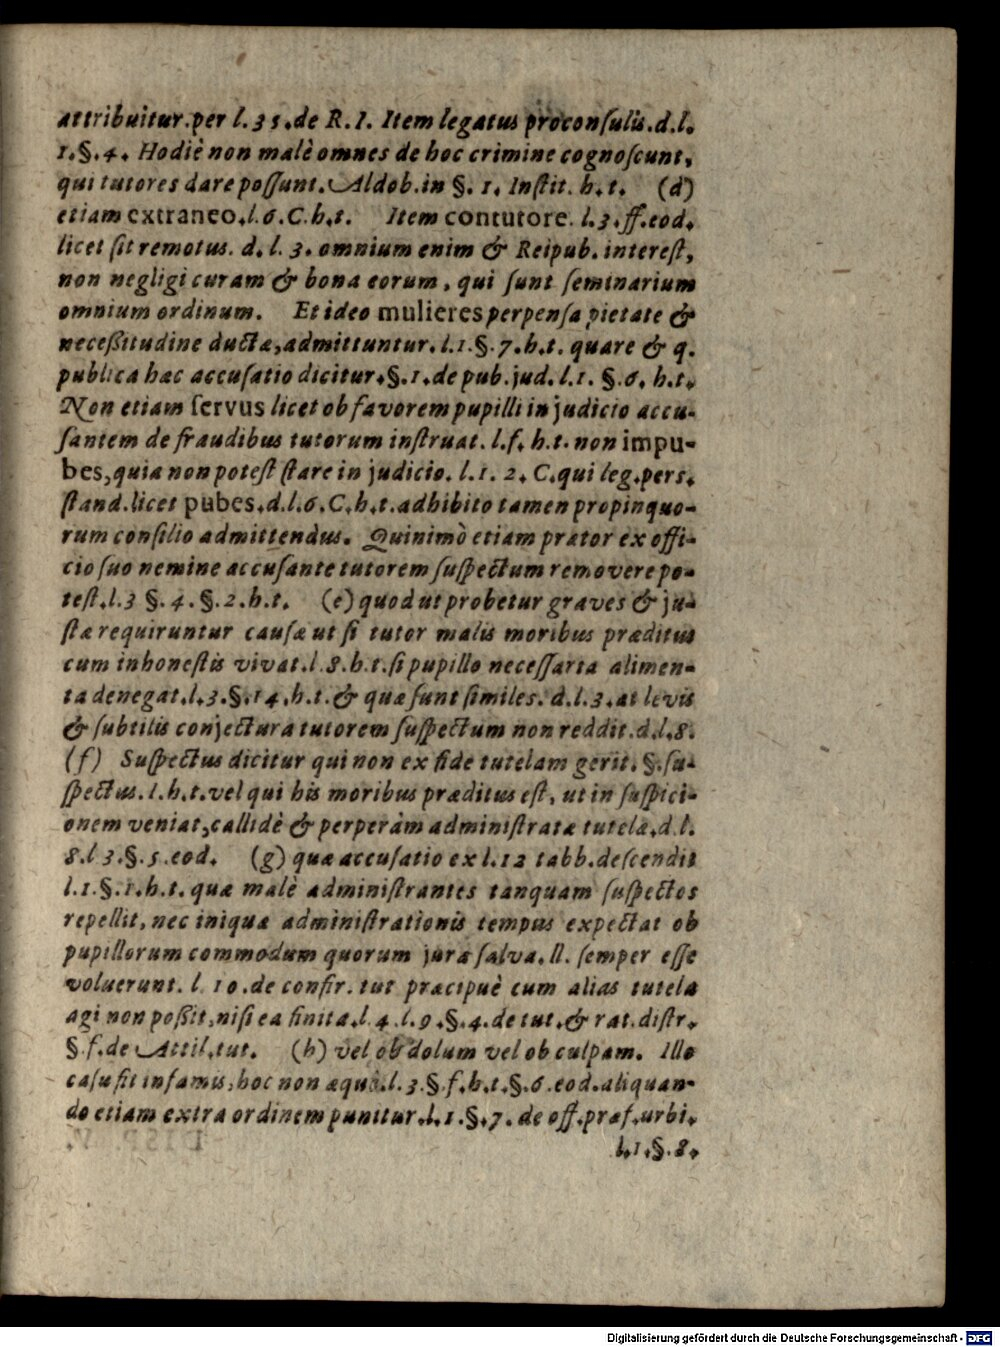 attribuitur.per l.35.de R.I. Item legatus proconſulis.d.l.
1.§.4. Hodiè non malè omnes de hoc crimine cognoſcunt,
qui tutores dare poſſunt. Aldob.in §. 1. Inſtit. h.t. (d)
etiam extraneo.l.6.C.h.t. Item contutore. l.3.ff.eod.
licet ſit remotus. d. l. 3. omnium enim & Reipub. intereſt,
non negligi curam & bona eorum, qui ſunt ſeminarium
omnium ordinum. Et ideo mulieres perpenſa pietate &
neceßitudine ductæ,admittuntur.l.1.§.7.h.t. quare & q.
publica hac accuſatio dicitur.§.1.de pub.jud.l.1. §.6. h.t.
Non etiam ſervus licet ob favorem pupilli in judicio accu-
ſantem de fraudibus tutorum inſtruat. l.f. h.t. non impu-
bes,quia non poteſt ſtare in judicio. l.1. 2. C.qui leg.perſ.
ſtand.licet pubes.d.l.6.C.h.t.adhibito tamen propinquo-
rum conſilio admittendus. Quinimò etiam prætor ex offi-
cio ſuo nemine accuſante tutorem ſuſpectum removere po-
teſt.l.3 §.4.§.2.h.t. (e) quod ut probetur graves & ju-
ſtæ requiruntur cauſæ ut ſi tutor malis moribus præditus
cum inhoneſtis vivat.l.8.h.t.ſi pupillo neceſſaria alimen-
ta denegat.l.3.§.14.h.t.& quæ ſunt ſimiles. d.l.3.at levis
& ſubtilis conjectura tutorem ſuſpectum non reddit.d.l.8.
(f) Suſpectus dicitur qui non ex fide tutelam gerit.§.ſu-
ſpectus.l.h.t.vel qui his moribus præditus eſt, ut in ſuſpici-
onem veniat,callidè & perperàm adminiſtratæ tutelæ.d.l.
8.l 3.§.5.eod. (g) quæ accuſatio ex l.12 tabb.deſcendit
l.1.§.1.h.t. quæ malè adminiſtrantes tanquam ſuſpectos
repellit, nec iniquæ adminiſtrationis tempus expectat ob
pupillorum commodum quorum jura ſalva.ll. ſemper eſſe
voluerunt. l 10.de confir. tut præcipuè cum alias tutela
agi non poßit,niſi ea finita.l.4.l.9.§.4.de tut.& rat.diſtr.
§.f.de Attil.tut. (h) vel ob dolum vel ob culpam. Illo
caſu fit infamis,hoc non æquè.l.3.§.f.h.t.§.6.eod.aliquan-
do etiam extra ordinem punitur.l.1.§.7. de off.præf.urbi.
l.1.§.8.
Digitalisierung gefördert durch die Deutsche Forschungsgemeinschaft - DFG